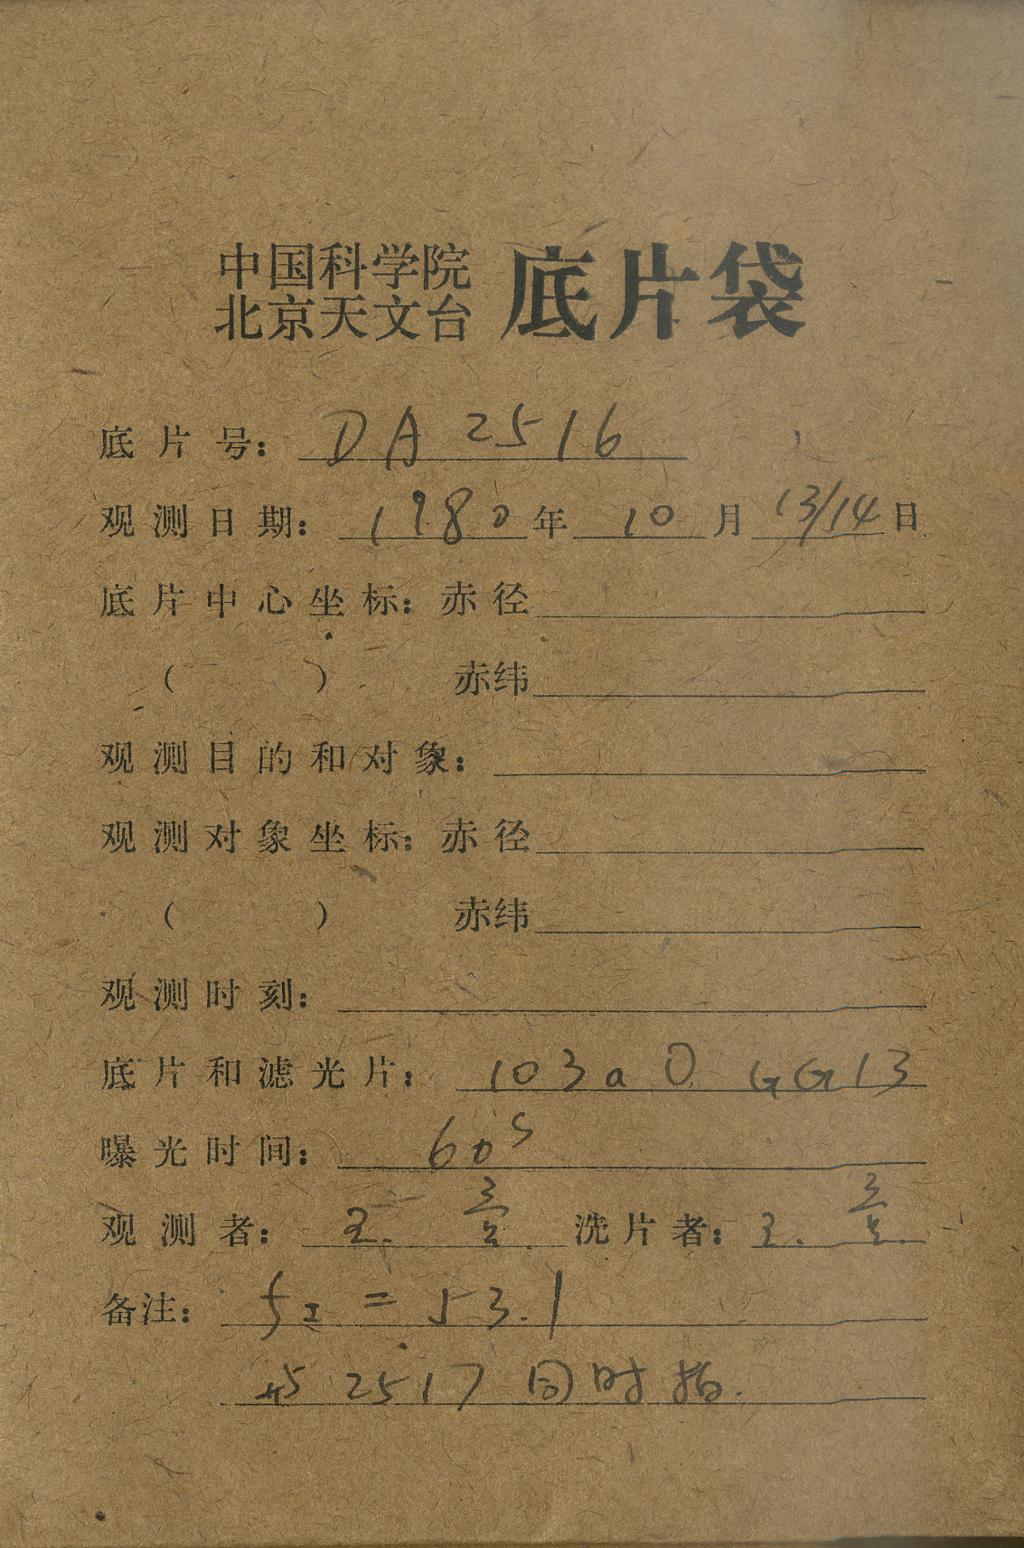 中国科学院
北京天文台 底片袋
底片号: DA 2516
观测日期: 1980年 10 月 13/14 日
底片中心坐标: 赤径
( ) 赤纬
观测目的和对象:
观测对象坐标: 赤径
( ) 赤纬
观测时刻:
底片和滤光片: 103aO GG13
曝光时间: 60s
观测者: 王. 洗片者: 王.
备注: fI = 53.1
与 2517 同时拍.